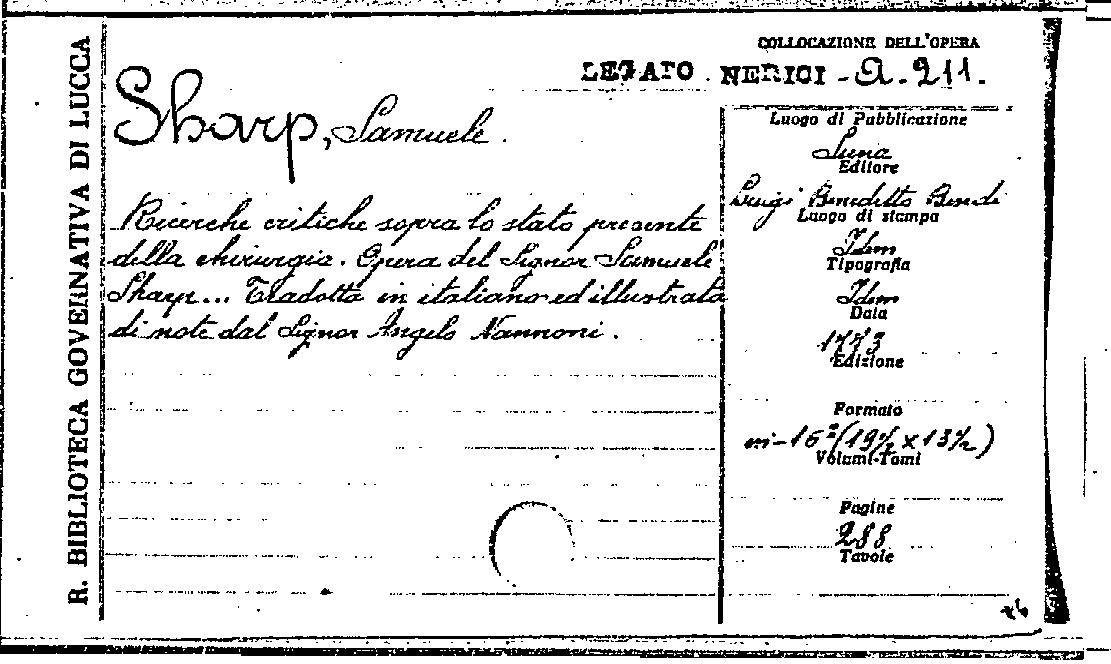 R. BIBLIOTECA GOVERNATIVA DI LUCCA
COLLOCAZIONE DELL'OPERA
LEGATO NERICI - A. 211.
Sharp, Samuele.
Ricerche critiche sopra lo stato presente
della chirurgia. Opera del Signor Samuele
Sharp... Tradotta in italiano ed illustrata
di note dal Signor Angelo Nannoni.
Luogo di Pubblicazione
Siena
Editore
Luigi Benedetto Bindi
Luogo di stampa
Idem
Tipografia
Idem
Data
1773
Edizione
Formato
in-16º (19½ x 13½)
Volumi-Tomi
Pagine
288
Tavole